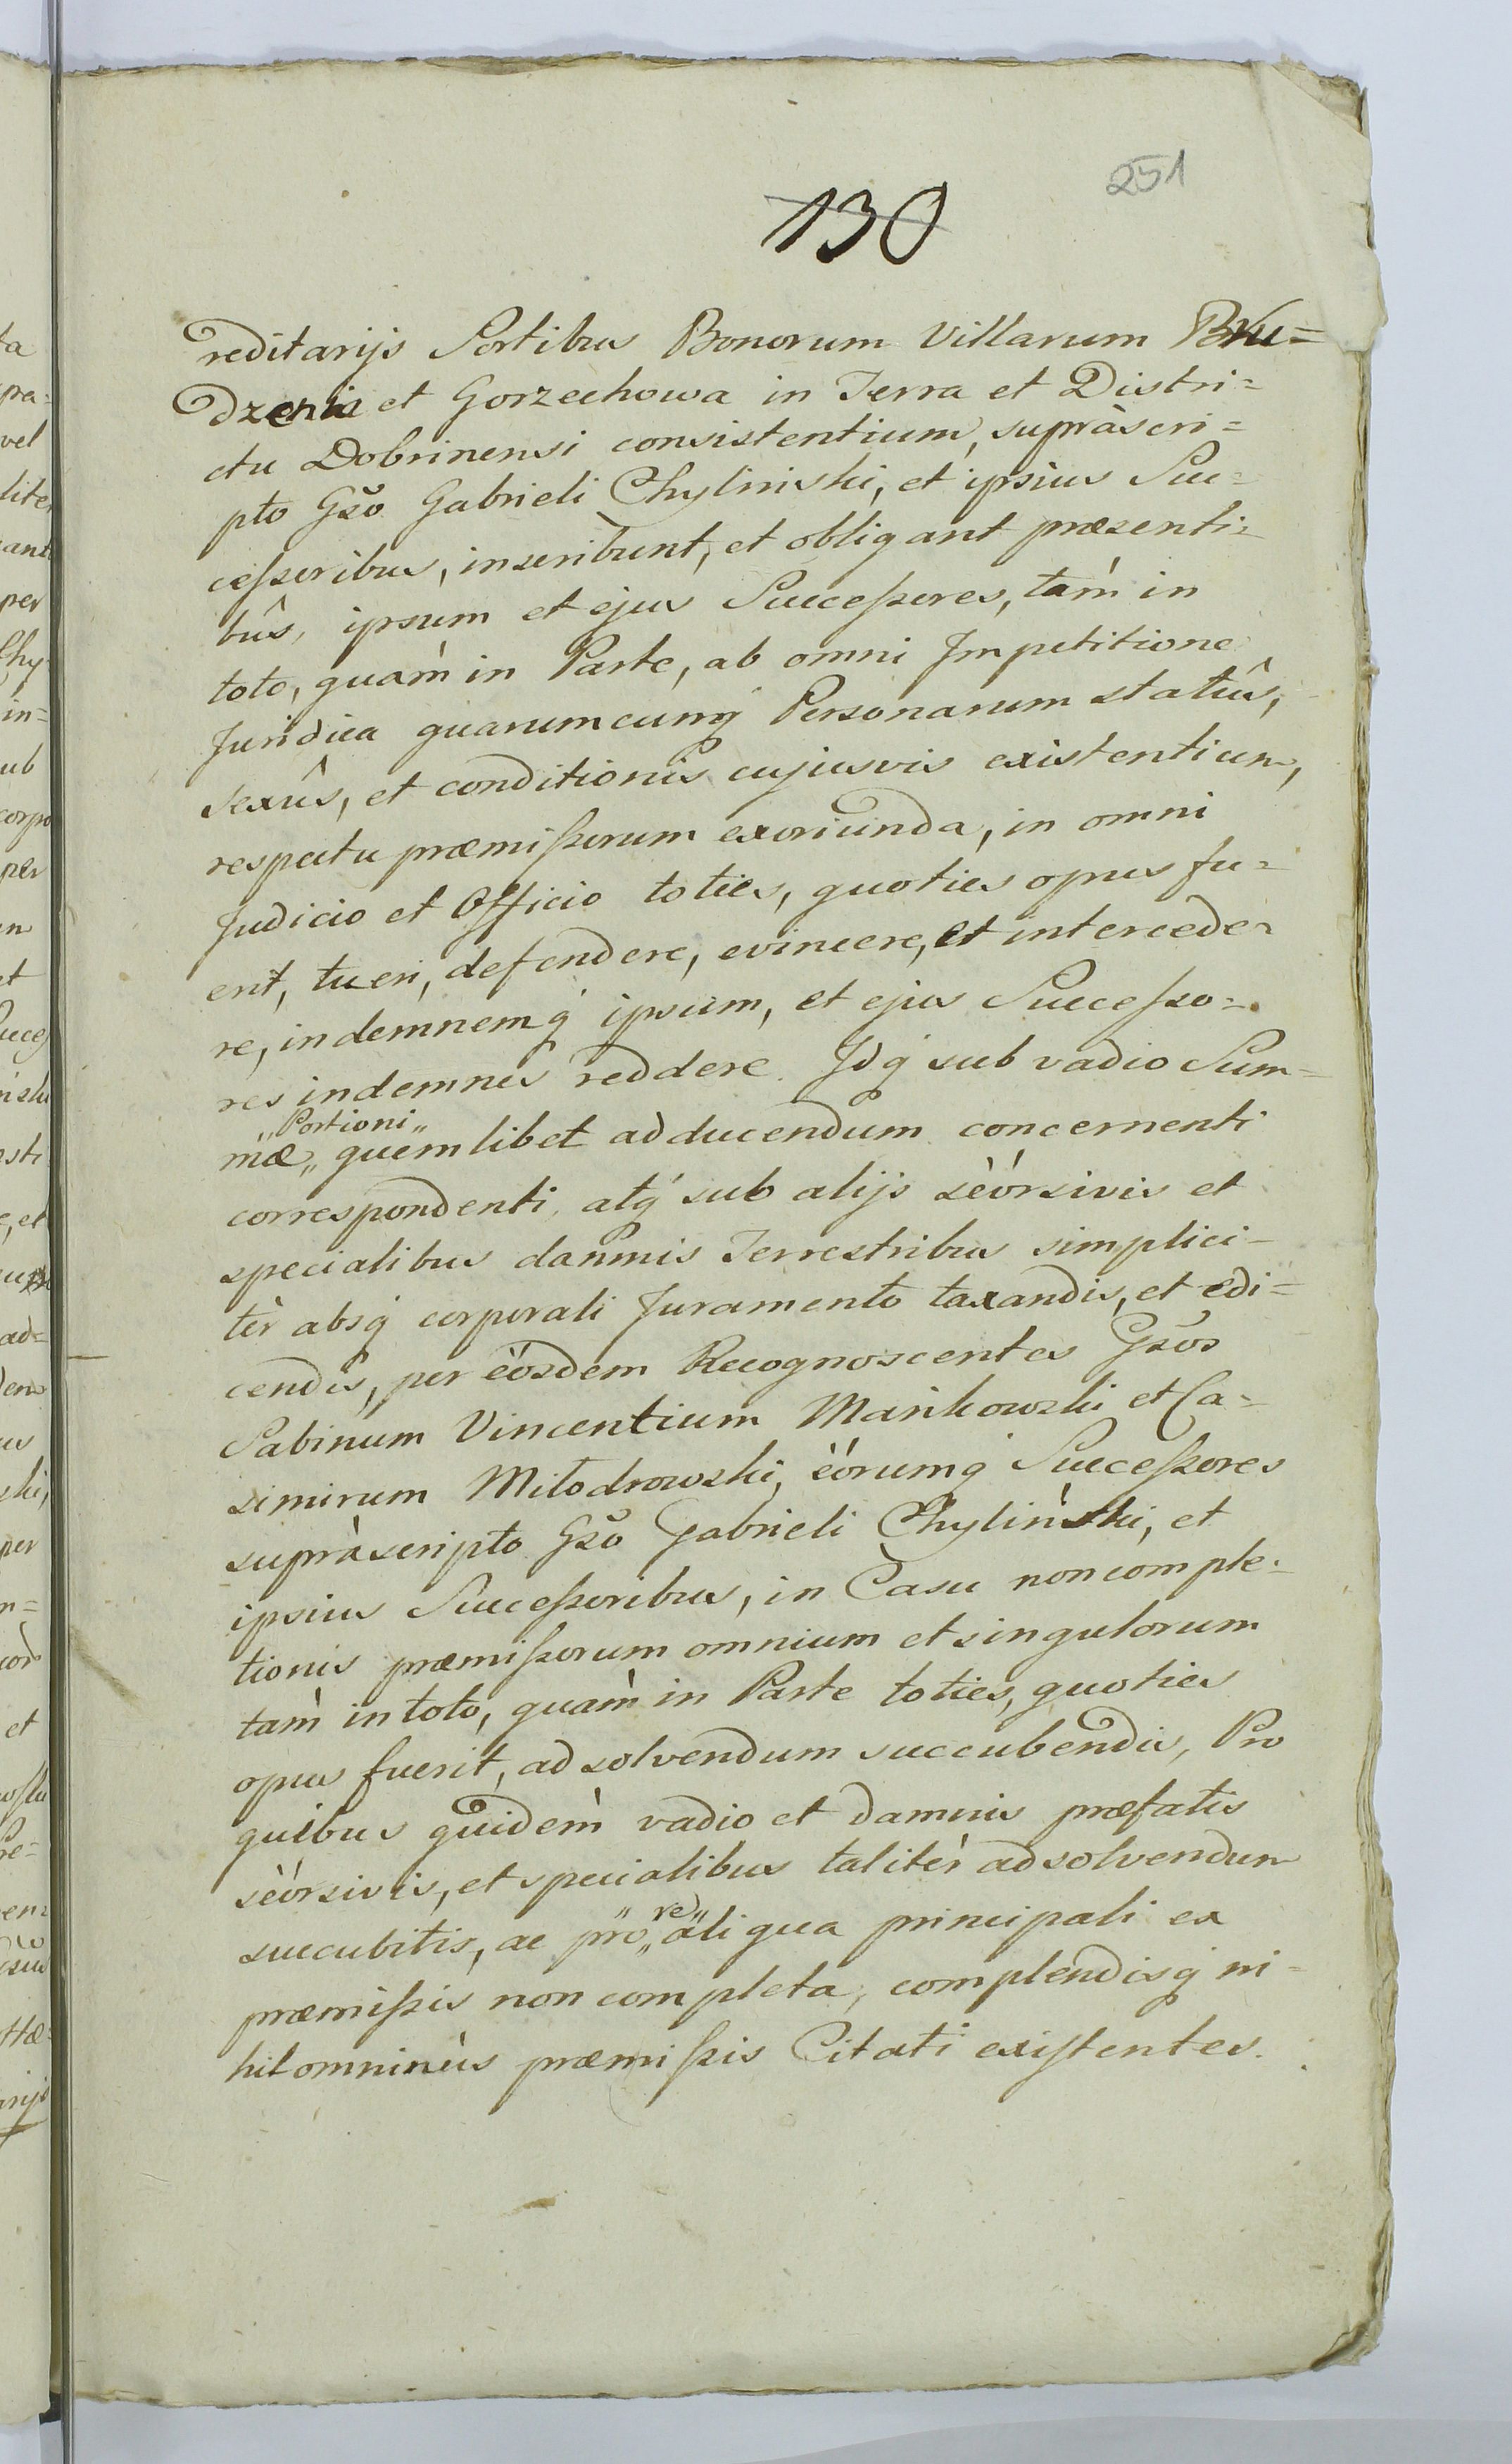 251
130
reditarijs Sortibus Bonorum Villarum Bru=
dzenia et Gorzechowa in Terra et Distri=
ctu Dobrinensi consistentium, supràscri=
pto Gsō Gabrieli Chylinski, et ipsius Suc=
ceſsoribus, inscribunt, et obligant præsenti=
bûs, ipsum et ejus Succeſsores, tàm in
toto, quàm in Parte, ab omni Impetitione
Juridica quarumcunq́ Personarum statûs,
sexûs, et conditionis cujusvis existentium,
respectu præmiſsorum exoriunda, in omni
Judicio et Officio toties, quoties opus fu=
erit, tueri, defendere, evincere, et intercede=
re, indemnemq́ ipsum, et ejus Succeſso=
res indemnes reddere. Idq́ sub vadio Sum=
„Portioni„
mæ„ quemlibet adducendum concernenti
correspondenti, atq́ sub alijs sèórsivis et
specialibus damnis Terrestribus simplici=
tèr absq́ corporali Juramento taxandis, et edi=
cendis, per èósdem Recognoscentes Gsōs
Sabinum Vincentium Mańkowski et Ca=
simirum Miłodrowski, èórumq́ Succeſsores
supràscripto Gsō Gabrieli Chyliński, et
ipsius Succeſsoribus, in Casu noncomple=
tionis præmiſsorum omnium et singulorum
tàm in toto, quàm in Parte toties, quoties
opus fuerit, ad solvendum succubendis, Pro
quibus quidèm vadio et damnis præfatis
sèórsivis, et specialibus talitèr adsolvendum
„re„
succubitis, ac pro„ aliqua principali ex
præmiſsis non completa, complendisq́ ni=
hilominùs præmiſsis Citati exiſtentes.